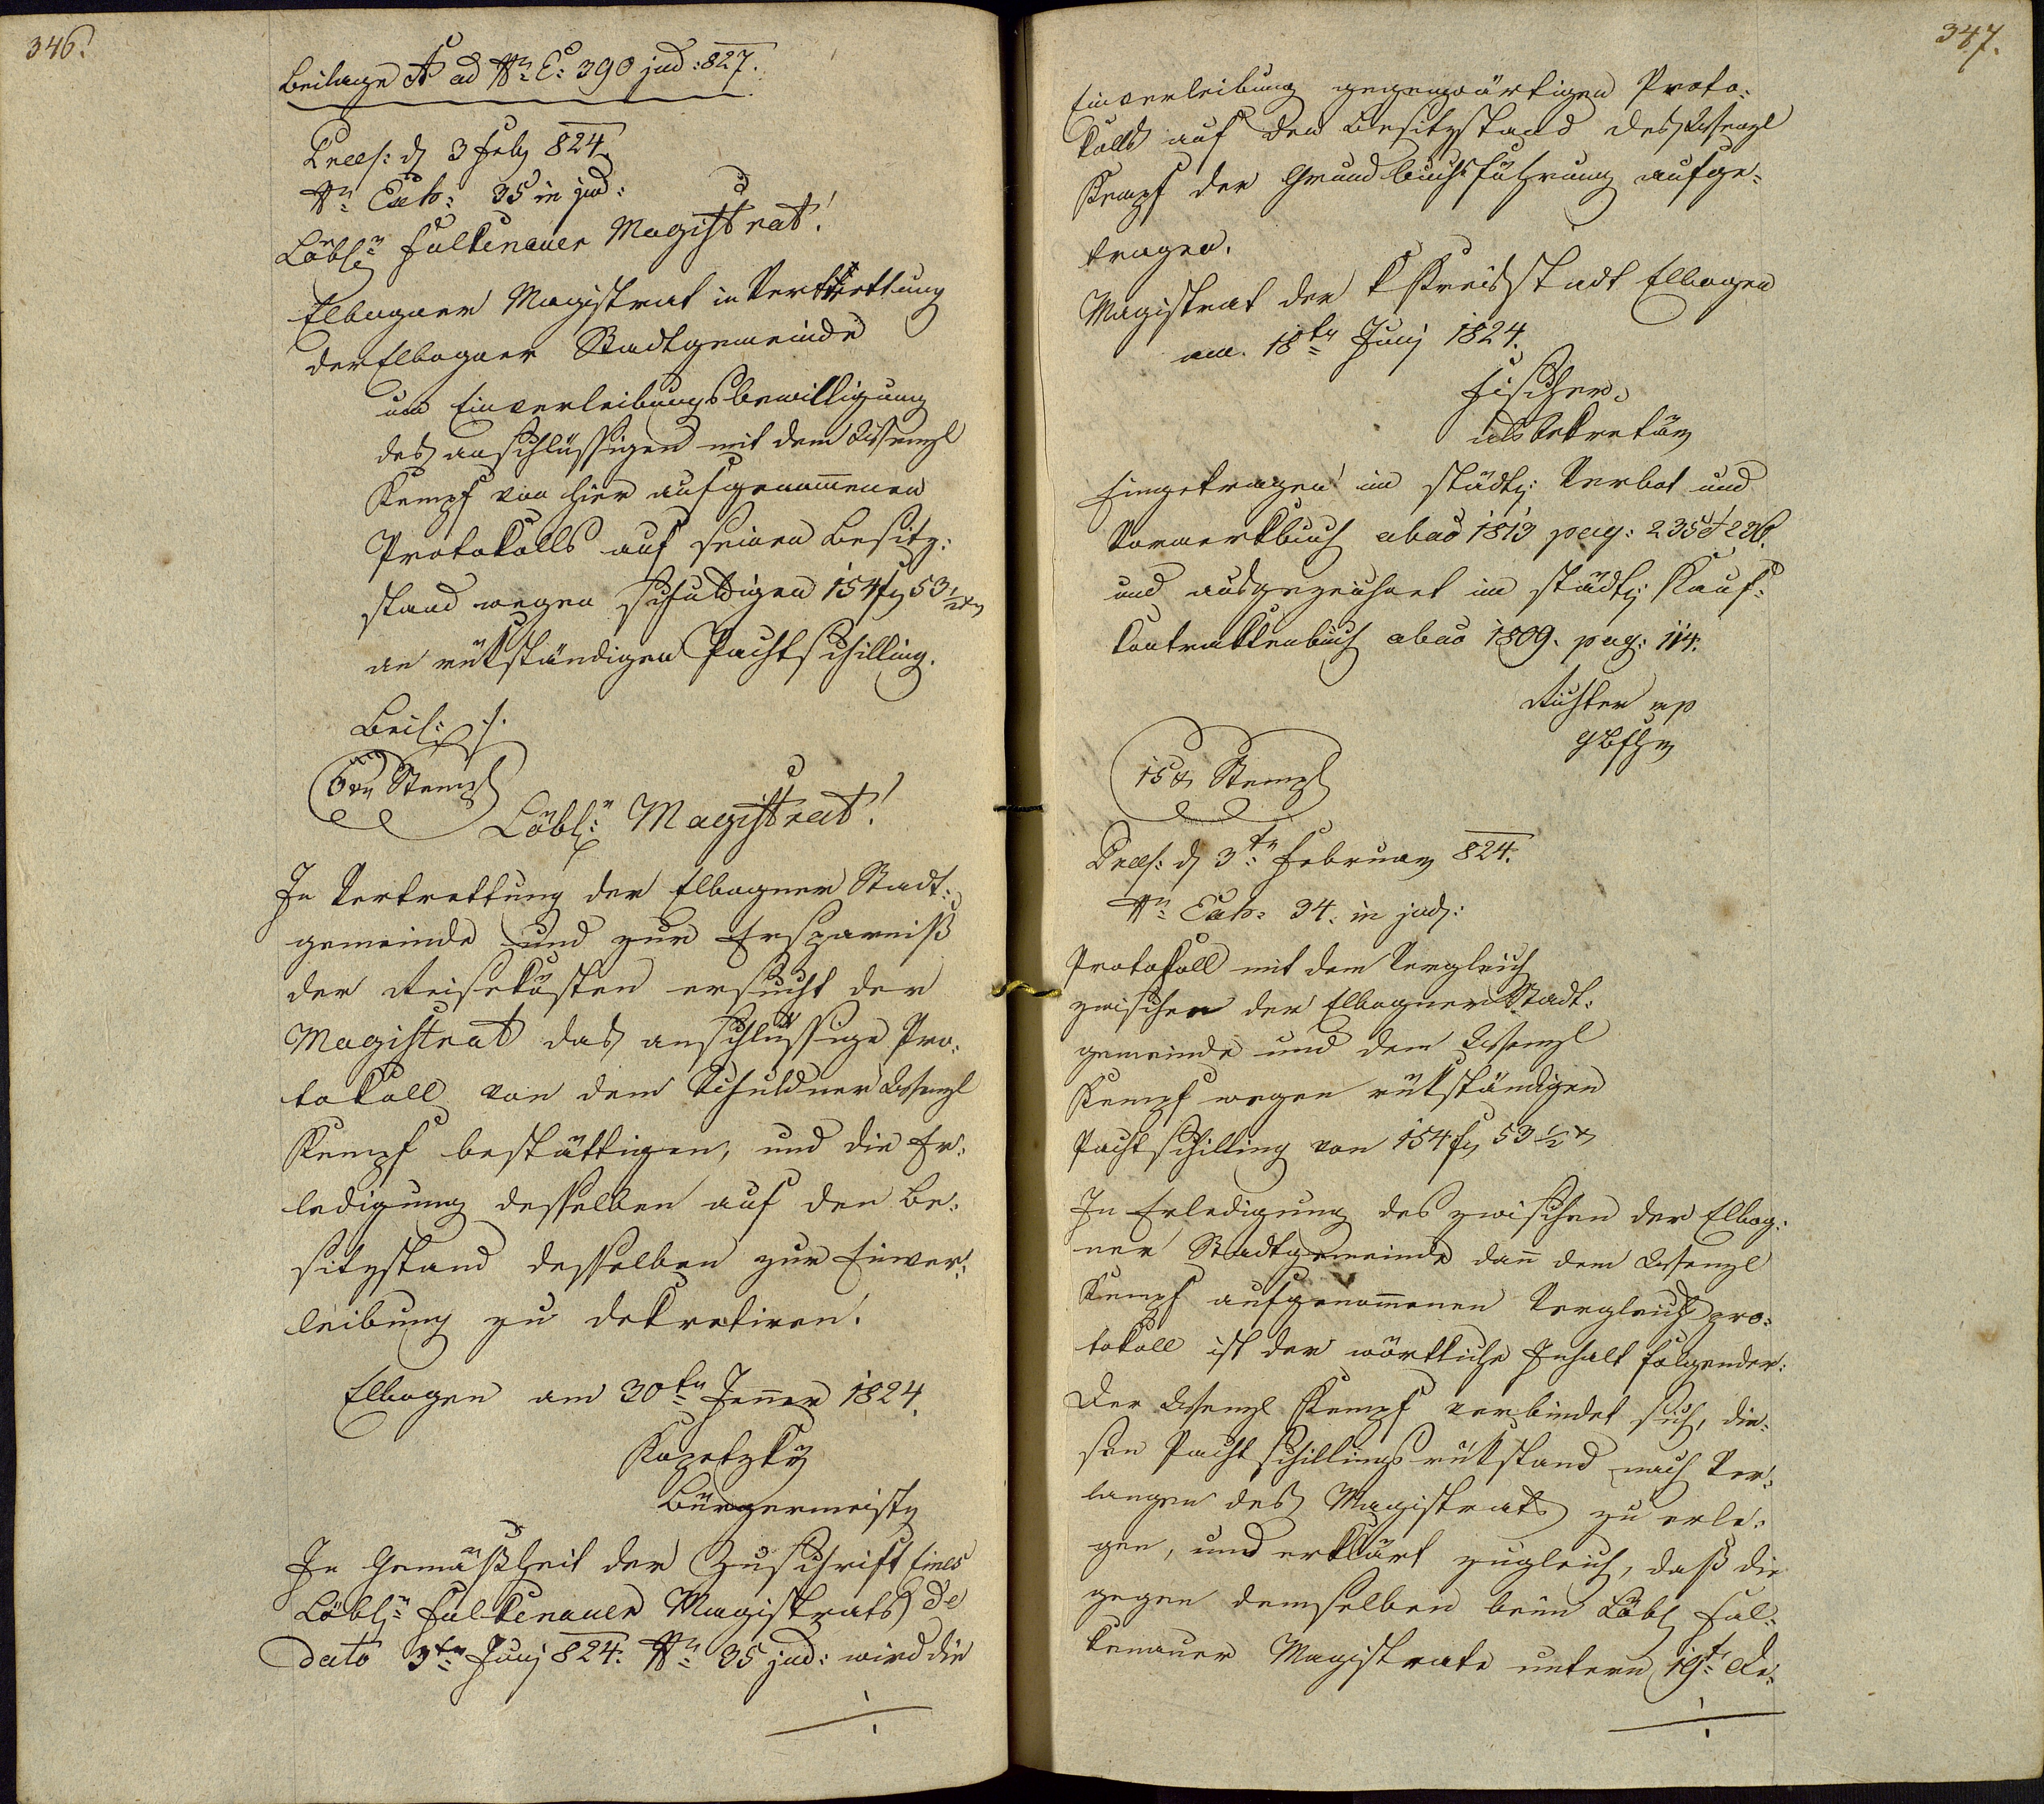 346.
Beilage A ad Nr: E: 390 jud: 827.
Præs: d 3 Feb 824.
Nr: Exh: 35 in jud:
Löbler Falkenauer Magistrat!
Elbogner Magistrat in Vertrettung
der Elbogner Stadtgemeinde
um Einverleibungsbewilligung
des anschlüssigen mit dem Wenzl
Kempf von hier aufgenommenen
Protokolls auf seinen Besitz:
stand wegen schuldigen 154 f 53 1/2 x
an rükständigen Pachtschilling.
Beil: ./.
6 xr Stempl
Löbl: Magistrat!
In Vertrettung der Elbogner Stadt:
gemeinde und zur Ersparniß
der Reisekösten ersucht der
Magistrat das anschlüssige Pro:
tokoll von dem Schuldner Wenzl
Kempf bestättigen, und die Er:
ledigung desselben auf den Be:
sitzstand desselben zur Einver:
leibung zu dekretiren.
Elbogen am 30ten Jenner 1824.
Kopetzky
Bürgermeister
In Gemäßheit der Zuschrift Eines
Löbl: Falkenauer Magistrats de
dato 3ten Juny 824. Nr: 35 jud: wird die
347.
Einverleibung gegenwärtigen Proto:
kolls auf den Besitzstand des Wenzl
Kempf der Grundbuchsführung aufge:
tragen.
Magistrat der K Kreisstadt Elbogen
am 18ten Juny 1824.
Fischer
als Sekretär
Eingetragen im städt: Verbot und
Vormerkbuch abao 1813 pag: 235 & 236.
und ausgezeichnet im städt: Kauf:
kontraktenbuch abao 1809. pag: 114.
Richter mp
15 x Stempl
Præs: d 3ten Februar 824.
Nr: Exh: 34. in jud:
Protokoll mit dem Vergleich
zwischen der Elbogner Stadt:
gemeinde und dem Wenzl
Kempf wegen rükständigen
Pachtschilling von 154 f 53 1/2 x
In Erledigung des zwischen der Elbog:
ner Stadtgemeinde dann dem Wenzl
Kempf aufgenommenen Vergleichspro:
tokoll ist der wörtliche Inhalt folgender:
Der Wenzl Kempf verbindet sich, die:
sen Pachtschillingsrükstand nach Ver:
langen des Magistrats zu erle:
gen, und erklärt zugleich, daß die
gegen demselben beim Löbl Fal:
kenauer Magistrate unterm 19t De: